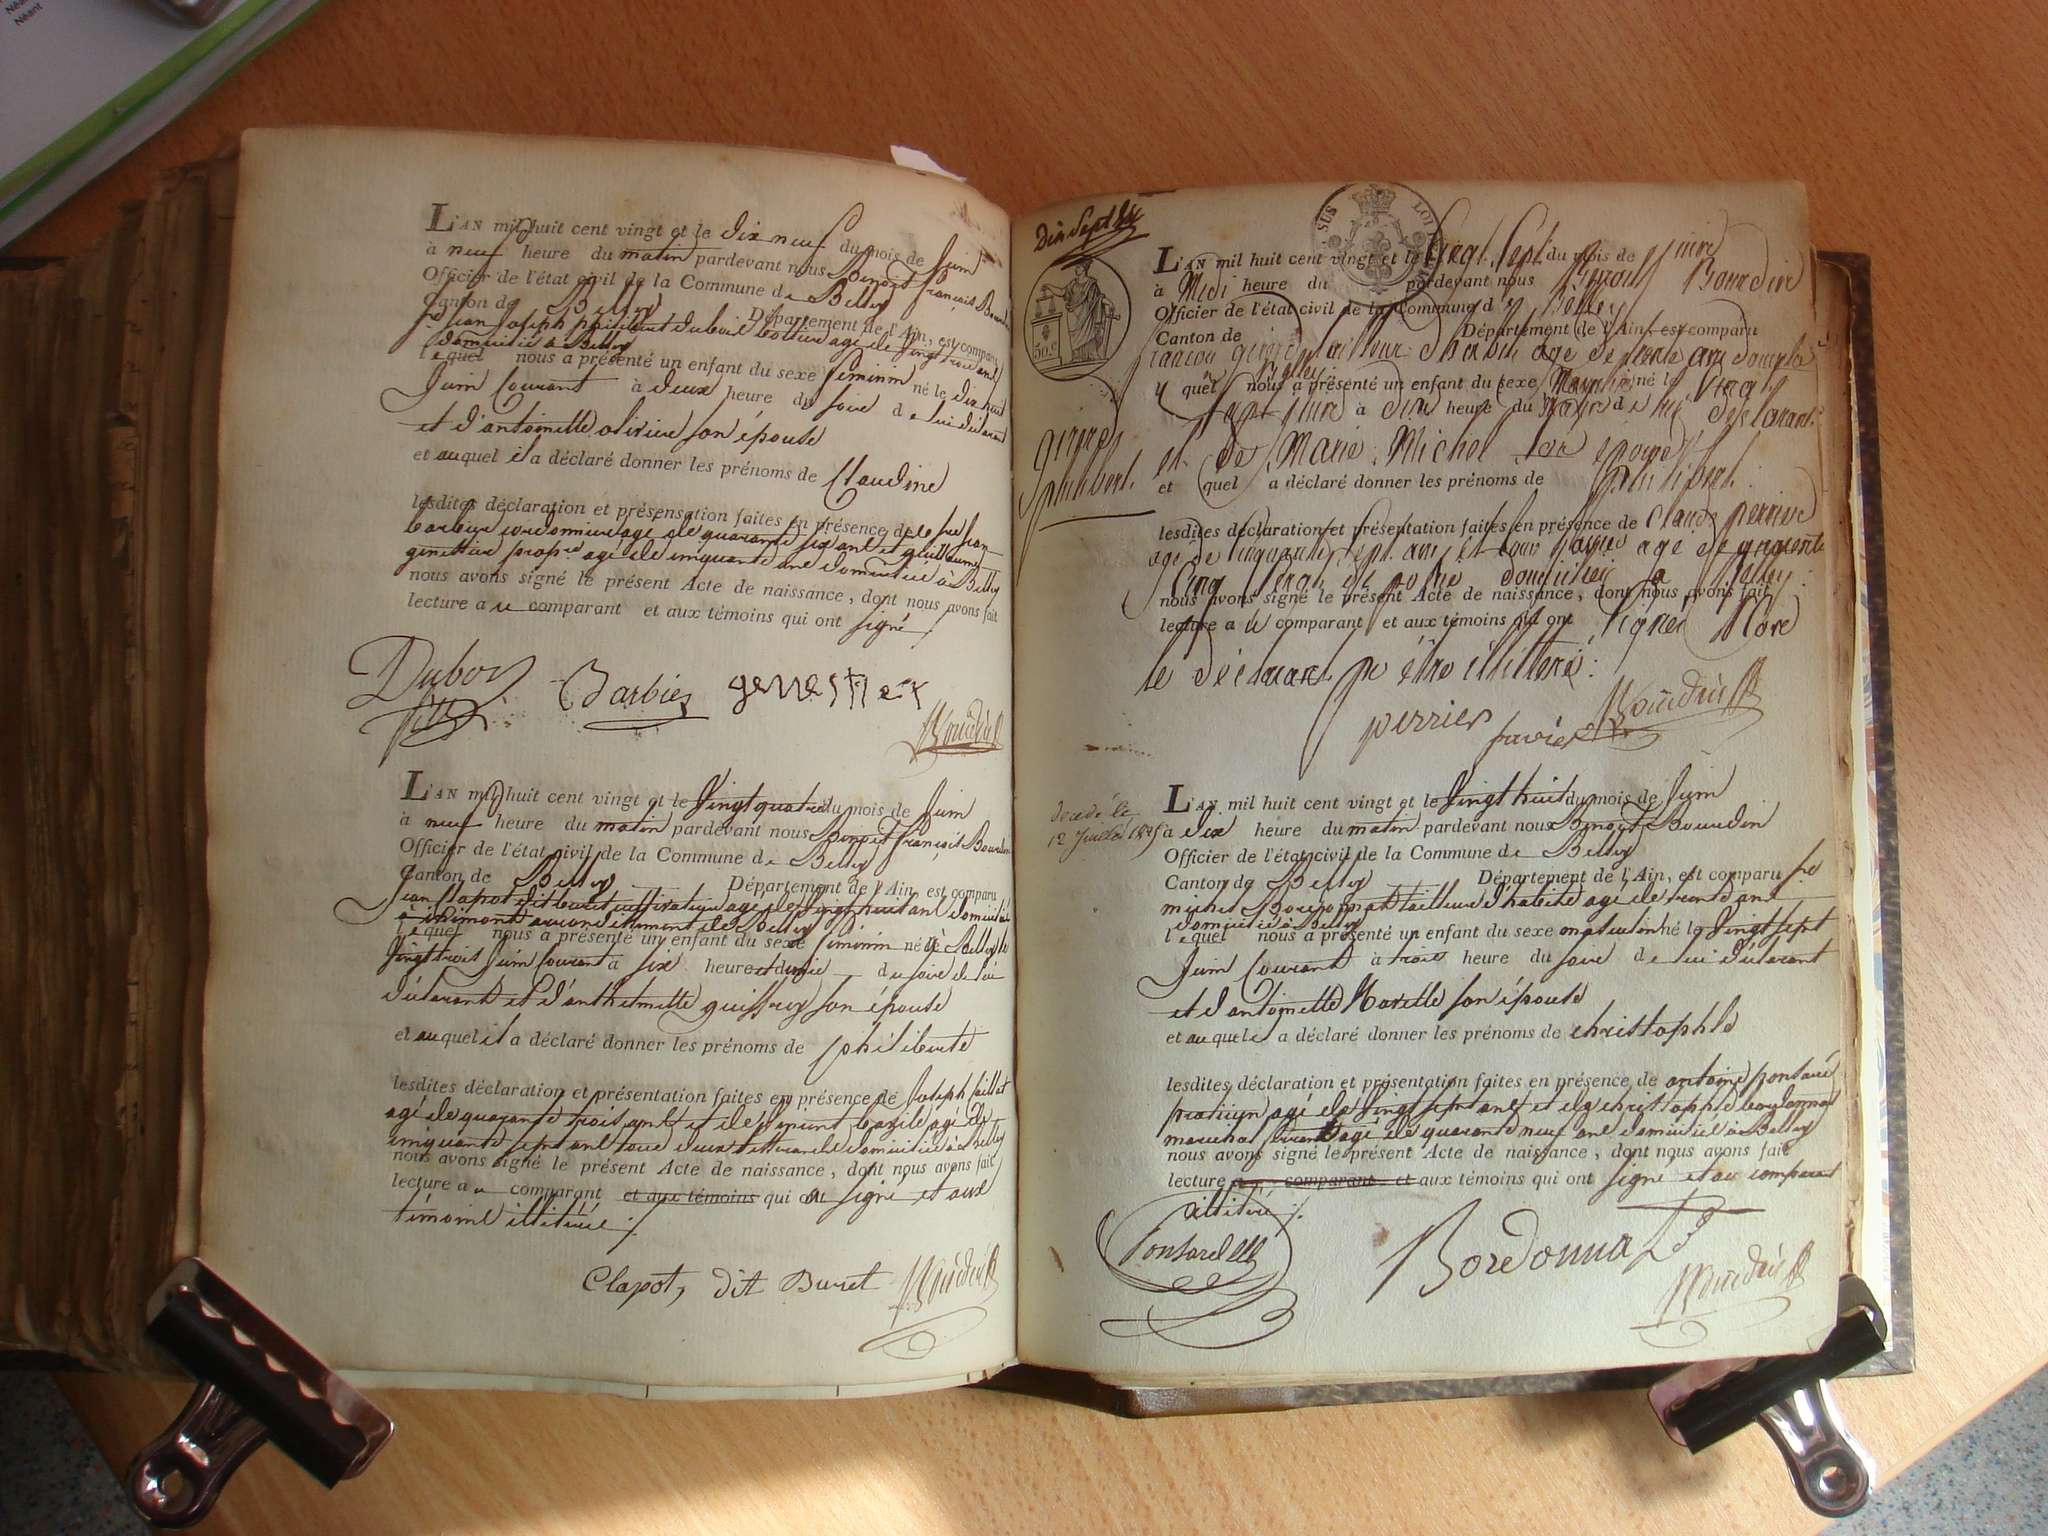 Néant
Néant
L'AN mil huit cent vingt et le dix neuf du mois de Juin
à neuf heure du matin pardevant nous Benoit françois Bourdin
Officier de l'état civil de la Commune de Belley
Canton de Belley Département de l'Ain, est comparu
jean joseph dubois agé de vingt trois ans
domicilié à Belley
lequel nous a présenté un enfant du sexe féminin né le dix huit
Juin Courant à deux heure du soir de lui déclarant
et d'antoinette olivier son épouse
et auquel il a déclaré donner les prénoms de Claudine
lesdites déclaration et présensation faites en présence de
barbier cordonnier agé de quarante six ans et guillaume
genettier prop.re agé de cinquante ans domicilié à Belley
nous avons signé le présent Acte de naissance, dont nous avons fait
lecture au comparant et aux témoins qui ont signé
Dubois
fils
Barbier
genestier
Bourdin
L'AN mil huit cent vingt et le vingt quatre du mois de Juin
à neuf heure du matin pardevant nous Benoit françois Bourdin
Officier de l'état civil de la Commune de Belley
Canton de Belley Département de l'Ain, est comparu
jean Clapot dit buret agé de vingt huit ans domicilié
à arrondissement de Belley
lequel nous a présenté un enfant du sexe féminin né à Belley le
vingt trois Juin Courant à six heure et demie du soir de lui
déclarant et d'anthelmette son épouse
et auquel il a déclaré donner les prénoms de philiberte
lesdites déclaration et présentation faites en présence de Joseph
agé de quarante trois ans et de agé de
cinquante sept ans tous deux domicilié à Belley
nous avons signé le présent Acte de naissance, dont nous avons fait
lecture au comparant et aux témoins qui ont a signé et aux
témoins illitérés
Clapot, dit Buret
Bourdin
Dix Sept
SUS LOI
50.c
girier
philibert
L'AN mil huit cent vingt et le vingt Sept du mois de juin
à Midi heure du pardevant nous Benoit Bourdin
Officier de l'état civil de la Commune d y Belley
Canton de Belley Département de l'Ain, est comparu
françois girier tailleur d'habit agé de trente ans domicilié
y quel nous a présenté un enfant du sexe Masculin né le vingt
sept juin à dix heure du matin de lui déclarant
et de Marie Michel son épouse
et quel a déclaré donner les prénoms de philibert
lesdites déclaration et présentation faites en présence de Claude perrier
agé de cinquante sept ans et louis favier agé de quarante
cinq domiciliés à Belley
nous avons signé le présent Acte de naissance, dont nous avons fait
lecture au comparant et aux témoins qui ont signer Non
le déclarant pr être illitéré
perrier
favier
Bourdin
décédé le
12 Juillet
L'AN mil huit cent vingt et le vingt huit du mois de Juin
à dix heure du matin pardevant nous Benoit Bourdin
Officier de l'état civil de la Commune de Belley
Canton de Belley Département de l'Ain, est comparu
michel tailleur d'habits agé de trente ans
domicilié à Belley
lequel nous a présenté un enfant du sexe masculin né le vingt sept
Juin Courant à trois heure du soir de lui déclarant
et d'antoinette son épouse
et auquel il a déclaré donner les prénoms de christophle
lesdites déclaration et présentation faites en présence de antoine
praticien agé de vingt sept ans et de christophle
marechal agé de quarante neuf ans domicilié à Belley
nous avons signé le présent Acte de naissance, dont nous avons fait
lecture au comparant et aux témoins qui ont signé et au comparant
illitéré
Bourdin